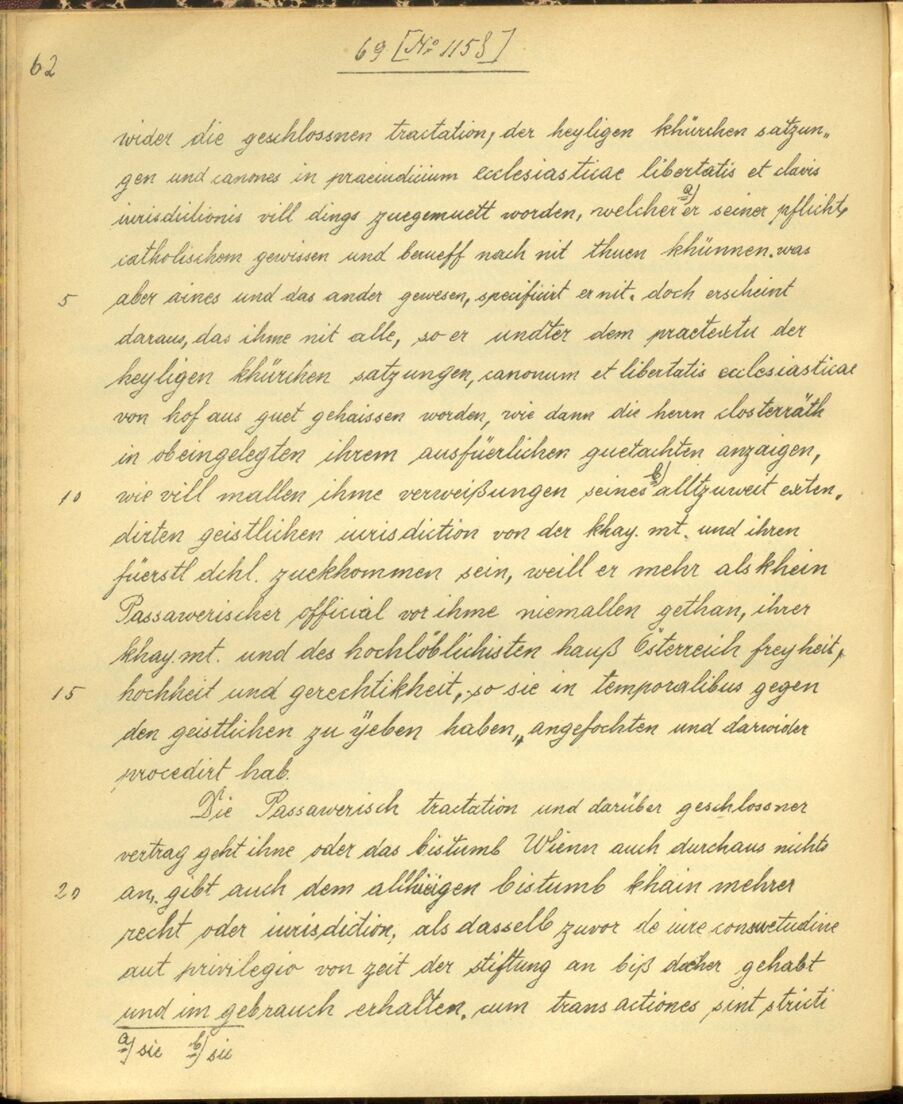 62
69 [No 1158]
wider die geschlossnen tractation, der heyligen khürchen satzun„
gen und canones in praeiudicium ecclesiasticae libertatis et clavis
iurisdictionis vill dings zuegemuett worden, welcher a) er seiner pflicht,
catholischem gewissen und berueff nach nit thuen khünnen. was
5 aber aines und das ander gewesen, specificirt er nit. doch erscheint
daraus, das ihme nit alle, so er undter dem praetextu der
heyligen khürchen satzungen, canonum et libertatis ecclesiasticae
von hof aus guet gehaissen worden, wie dann die herrn closterräth
in obeingelegten ihrem ausfüerlichen guetachten anzaigen,
10 wie vill mallen ihme verweißungen seines b) alltzuweit exten„
dirten geistlichen iurisdiction von der khay. mt. und ihren
füerstl dchl. zuekhommen sein, weill er mehr als khein
Passawerischer official vor ihme niemallen gethan, ihrer
khay. mt. und des hochlöblichisten hauß Österreich freyheit,
15 hochheit und gerechtikheit, so sie in temporalibus gegen
den geistlichen zu yeben haben, angefochten und darwider
procedirt hab.
Die Passawerisch tractation und darüber geschlossner
vertrag geht ihne oder das bistumb Wienn auch durchaus nichts
20 an, gibt auch dem allhieigen bistumb khain mehrer
recht oder iurisdiction, als dasselb zuvor de iure consuetudine
aut privilegio von zeit der stiftung an biß daher gehabt
und im gebrauch erhalten. cum transactiones sint stricti
a) sic b) sic